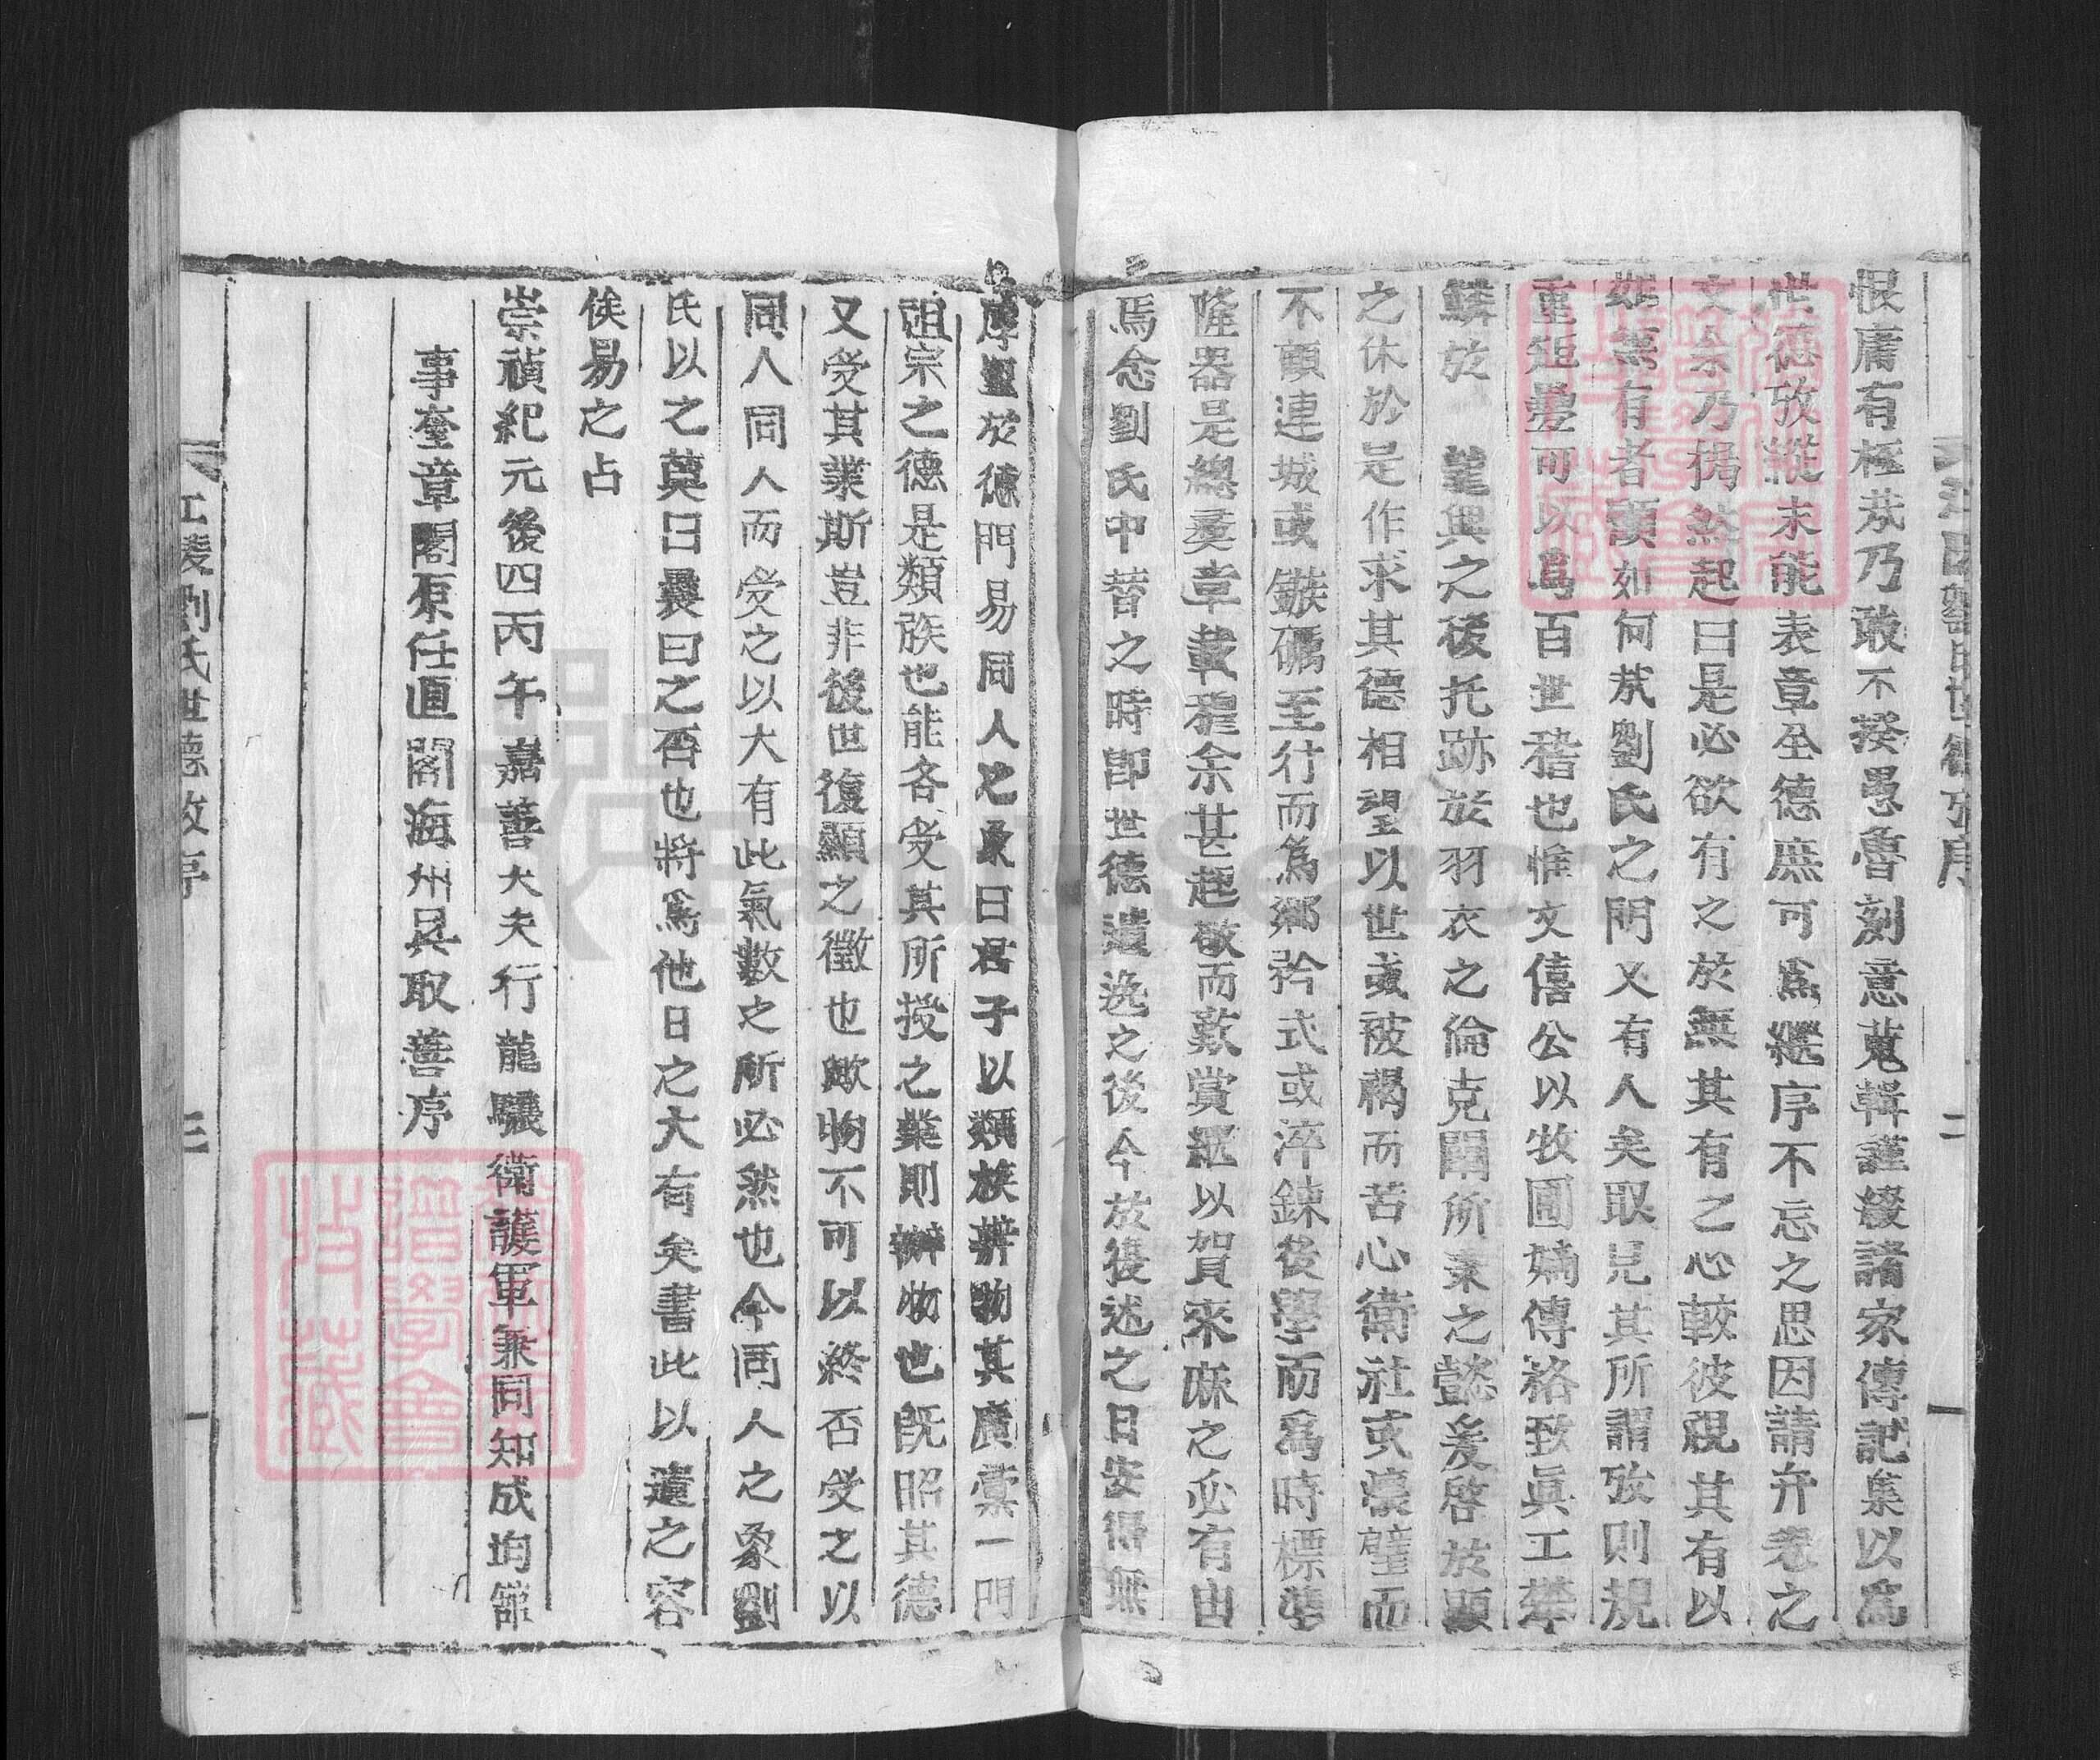 恨庸有極哉乃敢不揆愚魯刻意蒐輯謹綴諸家傳記集以爲
世德攷縱未能表章全德庶可爲繼序不忘之思因請弁卷之
文余乃惕然起曰是必欲有之於無其有之心較彼視其有以
難無有者顧如何哉劉氏之門又有人矣取見其所謂攷則規
重矩疊可以爲百世稽也惟文僖公以牧圃嫡傳裕致眞工攀
鱗於 龍興之後托跡於羽衣之倫克闡所秉之懿爰啓於顯
之休於是作求其德相望以世或被禍而苦心衛社或壞璧而
不顧連城或鏃礪至行而爲鄉矜式或淬鍊後學而爲時標準
隆器是總奏章載程余甚起敬而歎賞繼以賀來麻之必有由
焉念劉氏中昔之時卽世德遺逸之後今放後述之日安得無
摩聖於德門易同人之象曰君子以類族辨物其廣棠一門
祖宗之德是類族也能各受其所授之業則辨物也旣昭其德
又受其業斯豈非後世復顯之徵也歟物不可以終否受之以
同人同人而受之以大有此氣數之所必然也今同人之象劉
氏以之奠曰曩日之否也將爲他日之大有矣書此以遺之容
俟易之占
崇禎紀元後四丙午嘉善大夫行龍驤衛護軍兼同知成均館
事奎章閣原任直閣海州吳取善序
江陵劉氏世德攷序 二
江陵劉氏世德攷序 三